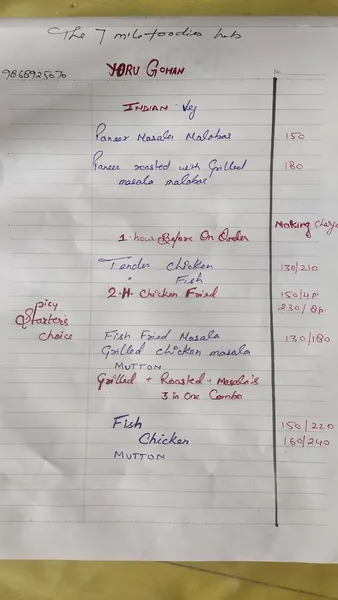 The 7 milefoodies hub
9868925070 YORU GOHAN
INDIAN Veg
Paneer Masala Malabar 150
Paneer roasted with Grilled 180
masala malabar
Making Charge
1. hour Before On Order
Tender Chicken 130/210
Fish
2.H. Chicken Fried 150/4P
230/8p
picy
Starter's
choice
Fish Fried Masala 130/180
Grilled chicken masala
MUTTON
Grilled + Roasted + Masala's
3 in One Combo
Fish 150/220
Chicken 160/240
MUTTON